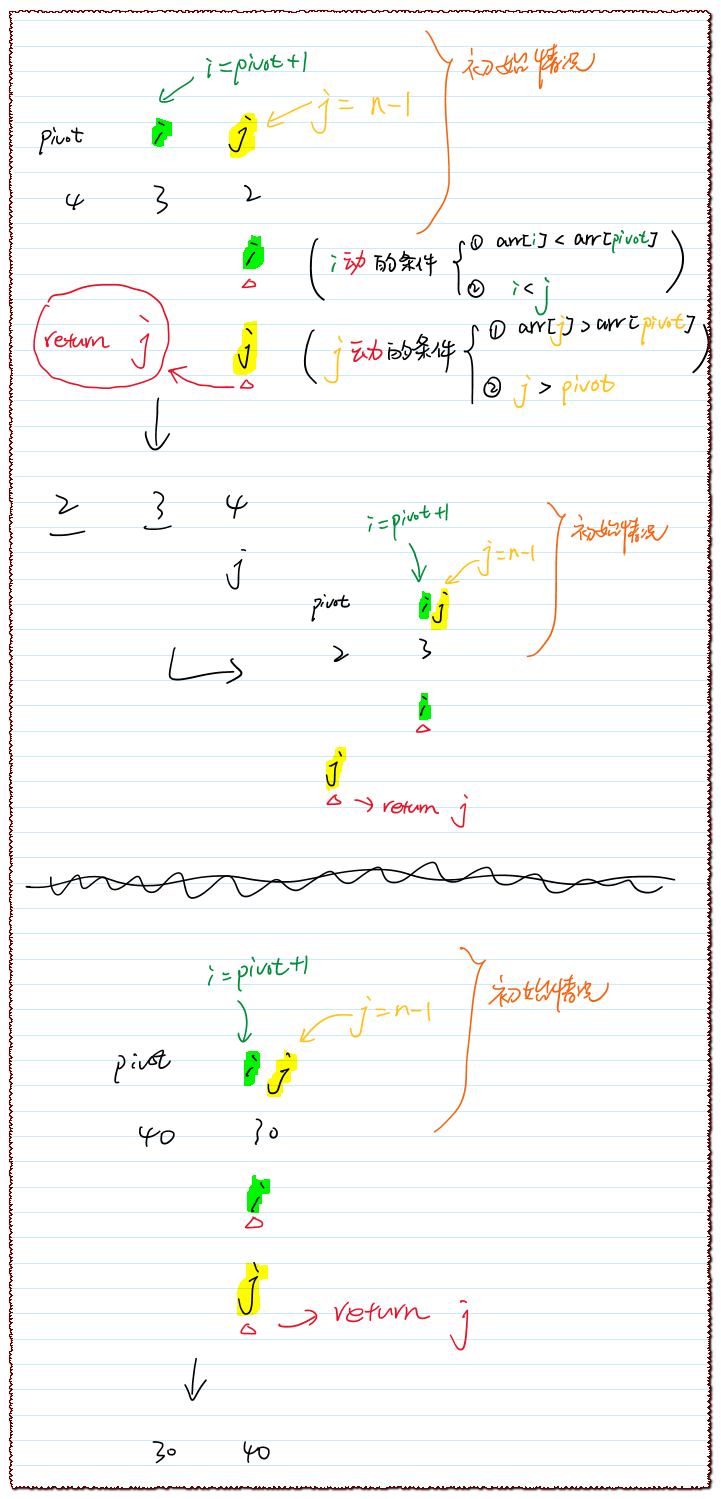 i=pivot+1 初始情况
j = n-1
pivot i j
4 3 2
i (i动的条件 { ① arr[i] < arr[pivot]
② i<j )
return j j (j动的条件 { ① arr[j] > arr[pivot]
② j > pivot )
2 3 4
i=pivot+1 初始情况
j j=n-1
pivot i j
2 3
i
j
return j
i=pivot+1 初始情况
j=n-1
pivot i j
40 30
i
j
return j
30 40